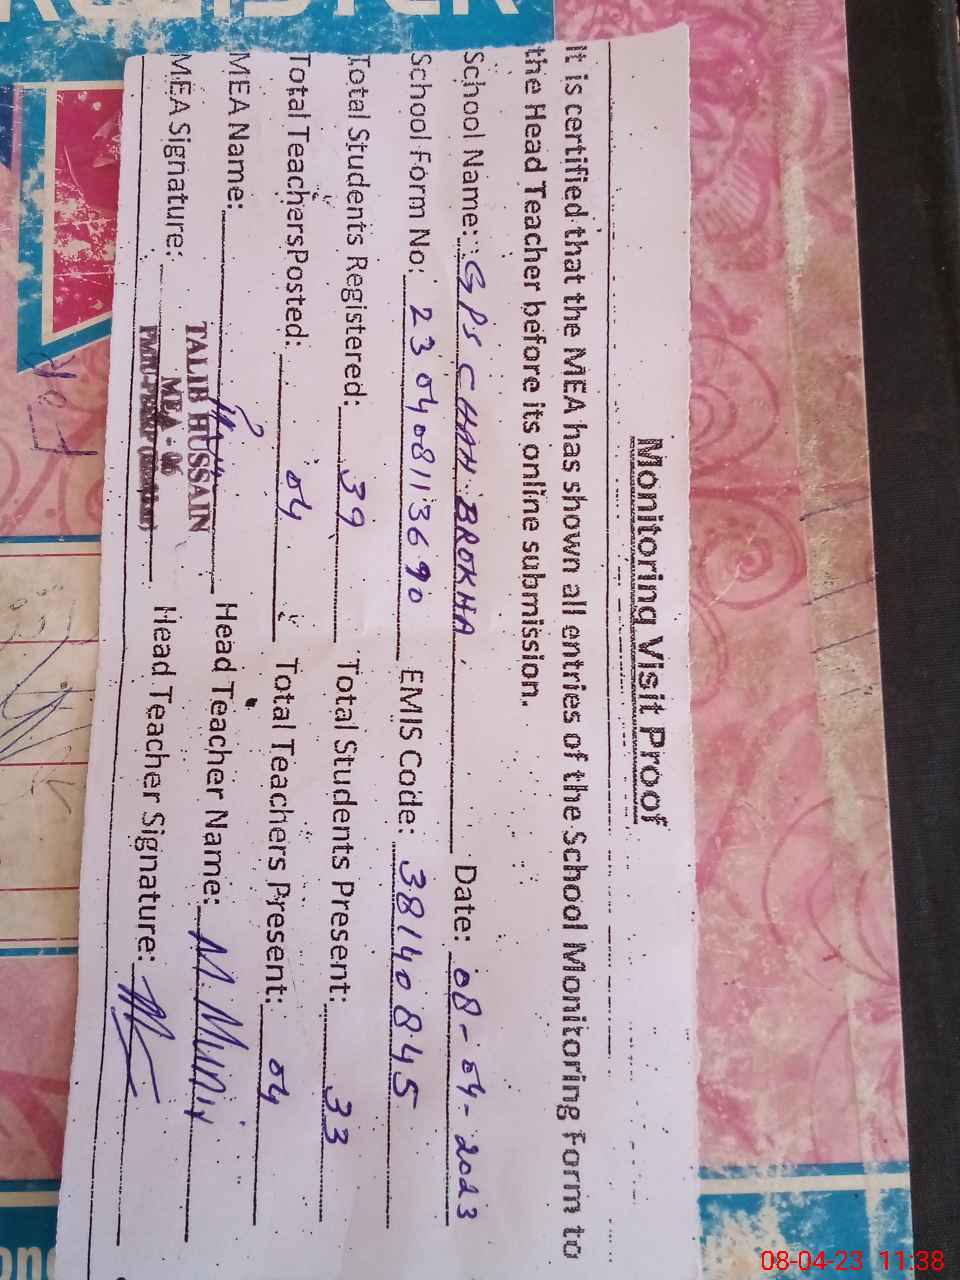 REGISTER
Monitoring Visit Proof
It is certified that the MEA has shown all entries of the School Monitoring Form to
the Head Teacher before its online submission.
School Name: GPS CHAH BROKHA Date: 08-04-2023
School Form No: 230408113690 EMIS Code: 38140845
Total Students Registered: 39 Total Students Present: 33
Total TeachersPosted: 04 Total Teachers Present: 04
MEA Name: Head Teacher Name: M. Munir
TALIB HUSSAIN
MEA - 06
MEA Signature: Head Teacher Signature:
08-04-23 11:38